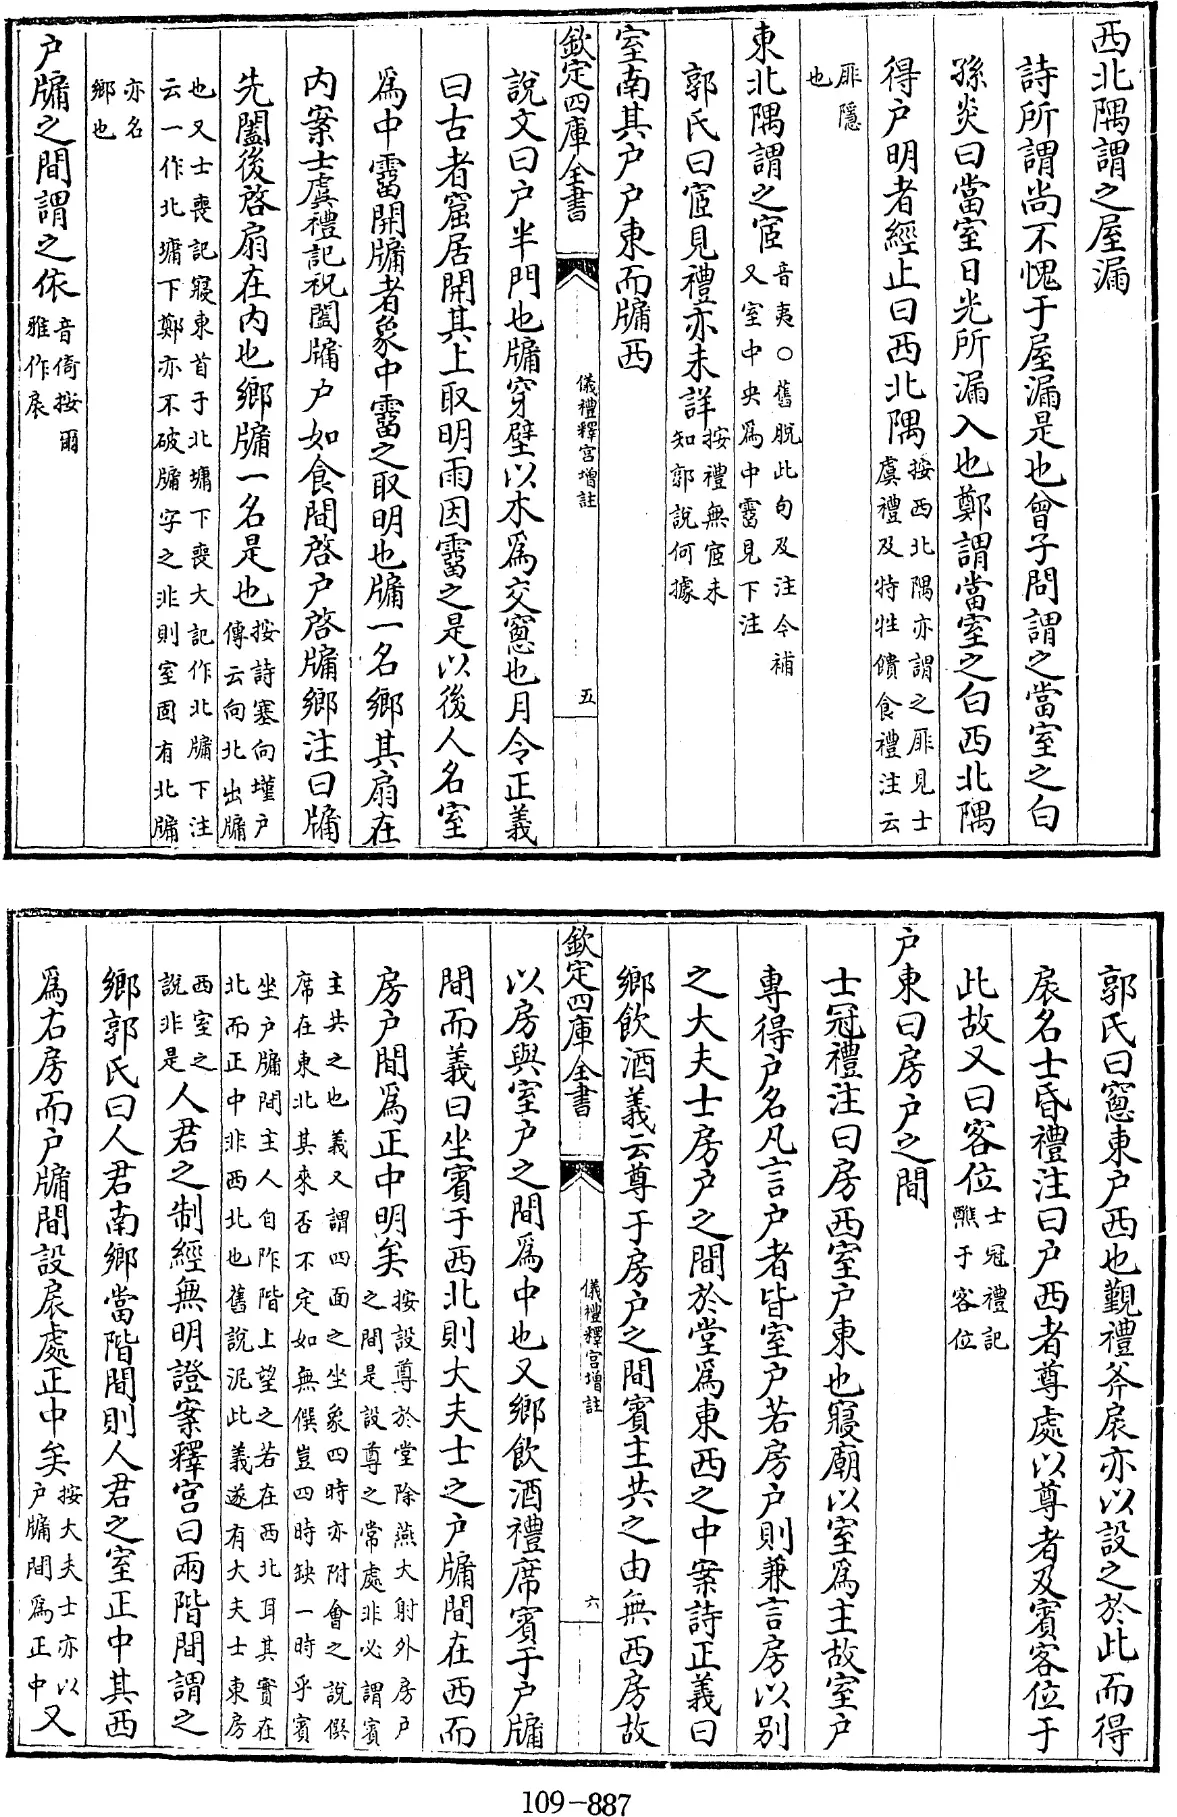 西北隅謂之屋漏
詩所謂尚不愧于屋漏是也曾子問謂之當室之白
孫炎曰當室日光所漏入也鄭謂當室之白西北隅
得户明者經止曰西北隅按西北隅亦謂之厞見士
虞禮及特牲饋食禮注云
厞隱
也
東北隅謂之宧音夷○舊脱此句及注今補
又室中央爲中霤見下注
郭氏曰宧見禮亦未詳按禮無宧未
知郭說何據
室南其户户東而牖西
欽定四庫全書
儀禮釋宫增註
五
說文曰户半門也牖穿壁以木爲交窻也月令正義
曰古者窟居開其上取明雨因霤之是以後人名室
爲中霤開牖者象中霤之取明也牖一名鄉其扇在
内案士虞禮記祝闔牖户如食間啓户啓牖鄉注曰牖
先闔後啓扇在内也鄉牖一名是也按詩塞向墐户
傳云向北出牖
也又士喪記寢東首于北墉下喪大記作北牖下注
云一作北墉下鄭亦不破牖字之非則室固有北牖
亦名
鄉也
户牖之間謂之依音倚按爾
雅作扆
郭氏曰窻東户西也覲禮斧扆亦以設之於此而得
扆名士昏禮注曰户西者尊處以尊者及賓客位于
此故又曰客位士冠禮記
醮于客位
户東曰房户之間
士冠禮注曰房西室户東也寢廟以室爲主故室户
專得户名凡言户者皆室户若房户則兼言房以别
之大夫士房户之間於堂爲東西之中案詩正義曰
鄉飲酒義云尊于房户之間賓主共之由無西房故
欽定四庫全書
儀禮釋宫增註
六
以房與室户之間爲中也又鄉飲酒禮席賓于户牖
間而義曰坐賓于西北則大夫士之户牖間在西而
房户間爲正中明矣按設尊於堂除燕大射外房户
之間是設尊之常處非必謂賓
主共之也義又謂四面之坐象四時亦附會之說僎
席在東北其來否不定如無僎豈四時缺一時乎賓
坐户牖間主人自阼階上望之若在西北耳其實在
北而正中非西北也舊説泥此義遂有大夫士東房
西室之
説非是人君之制經無明證案釋宫曰兩階間謂之
鄉郭氏曰人君南鄉當階間則人君之室正中其西
爲右房而户牖間設扆處正中矣按大夫士亦以
户牖間爲正中又
109-887